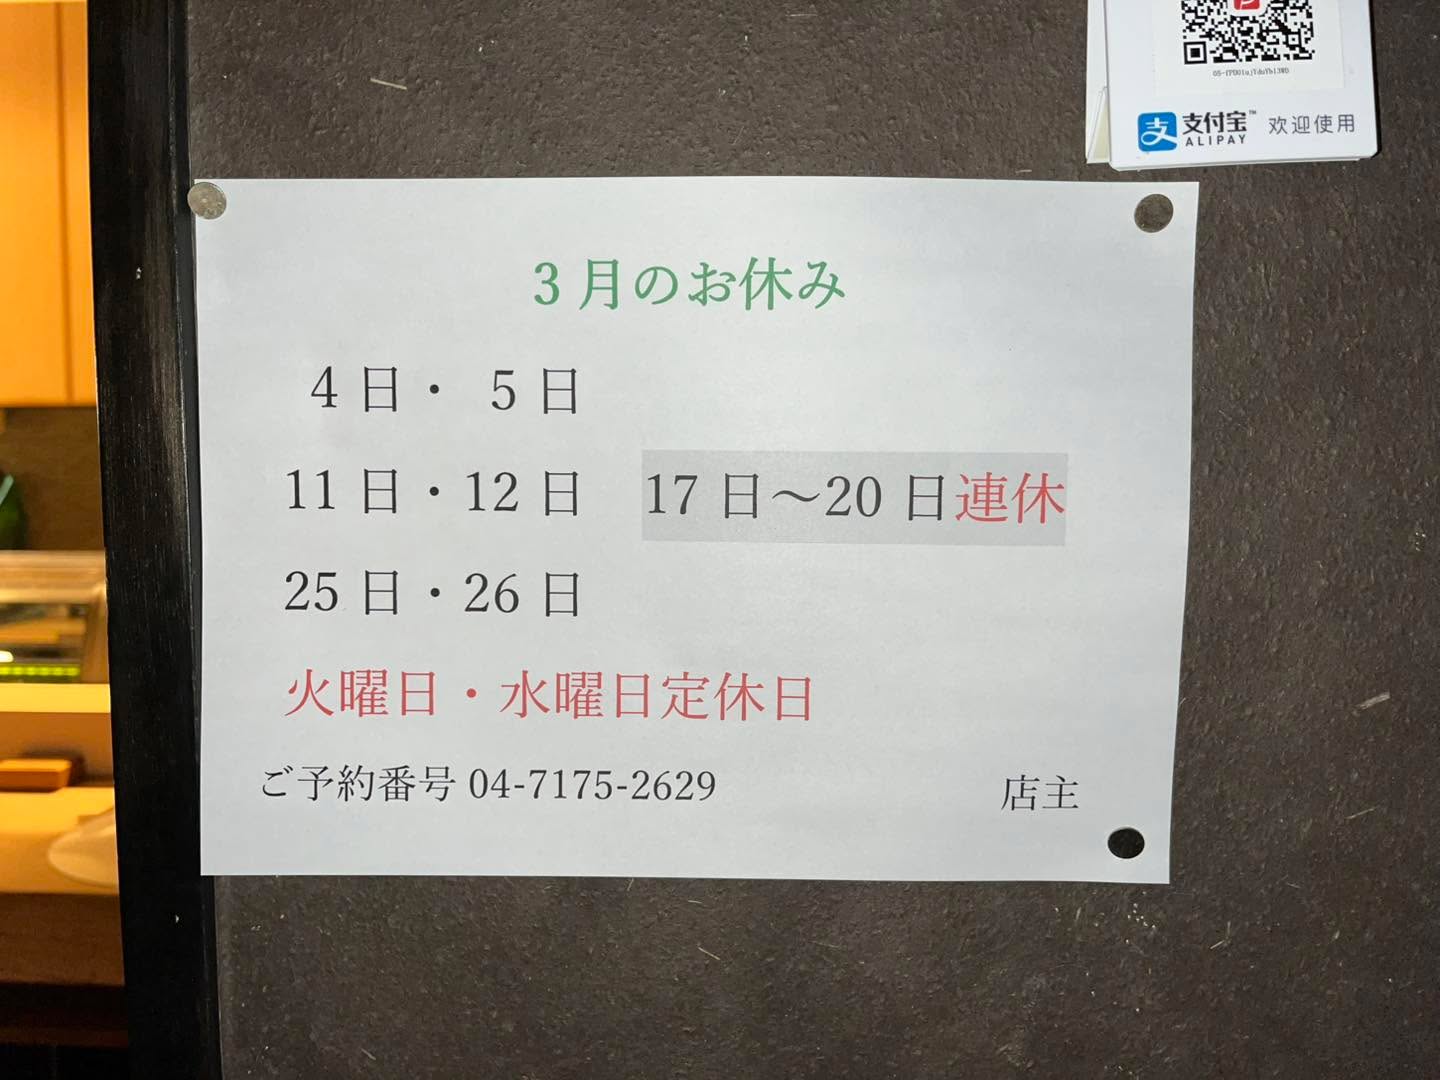 支付宝™ 欢迎使用
ALIPAY
3月のお休み
4日・ 5日
11日・12日 17日～20日連休
25日・26日
火曜日・水曜日定休日
ご予約番号 04-7175-2629 店主